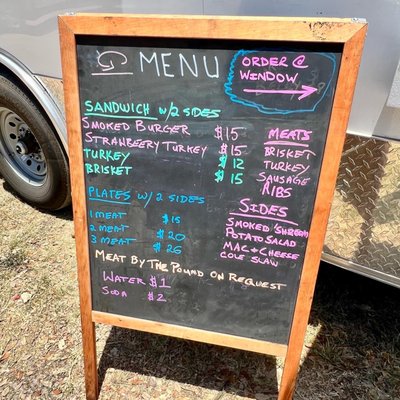 MENU
ORDER @
WINDOW
SANDWICH w/2 SIDES
SMOKED BURGER $15
STRAWBERRY TURKEY $15
TURKEY $12
BRISKET $15
MEATS
BRISKET
TURKEY
SAUSAGE
RIBS
PLATES w/2 SIDES
1 MEAT $15
2 MEAT $20
3 MEAT $26
SIDES
SMOKED
POTATO SALAD
MAC + CHEESE
COLE SLAW
MEAT BY THE POUND ON REQUEST
WATER $1
SODA $2